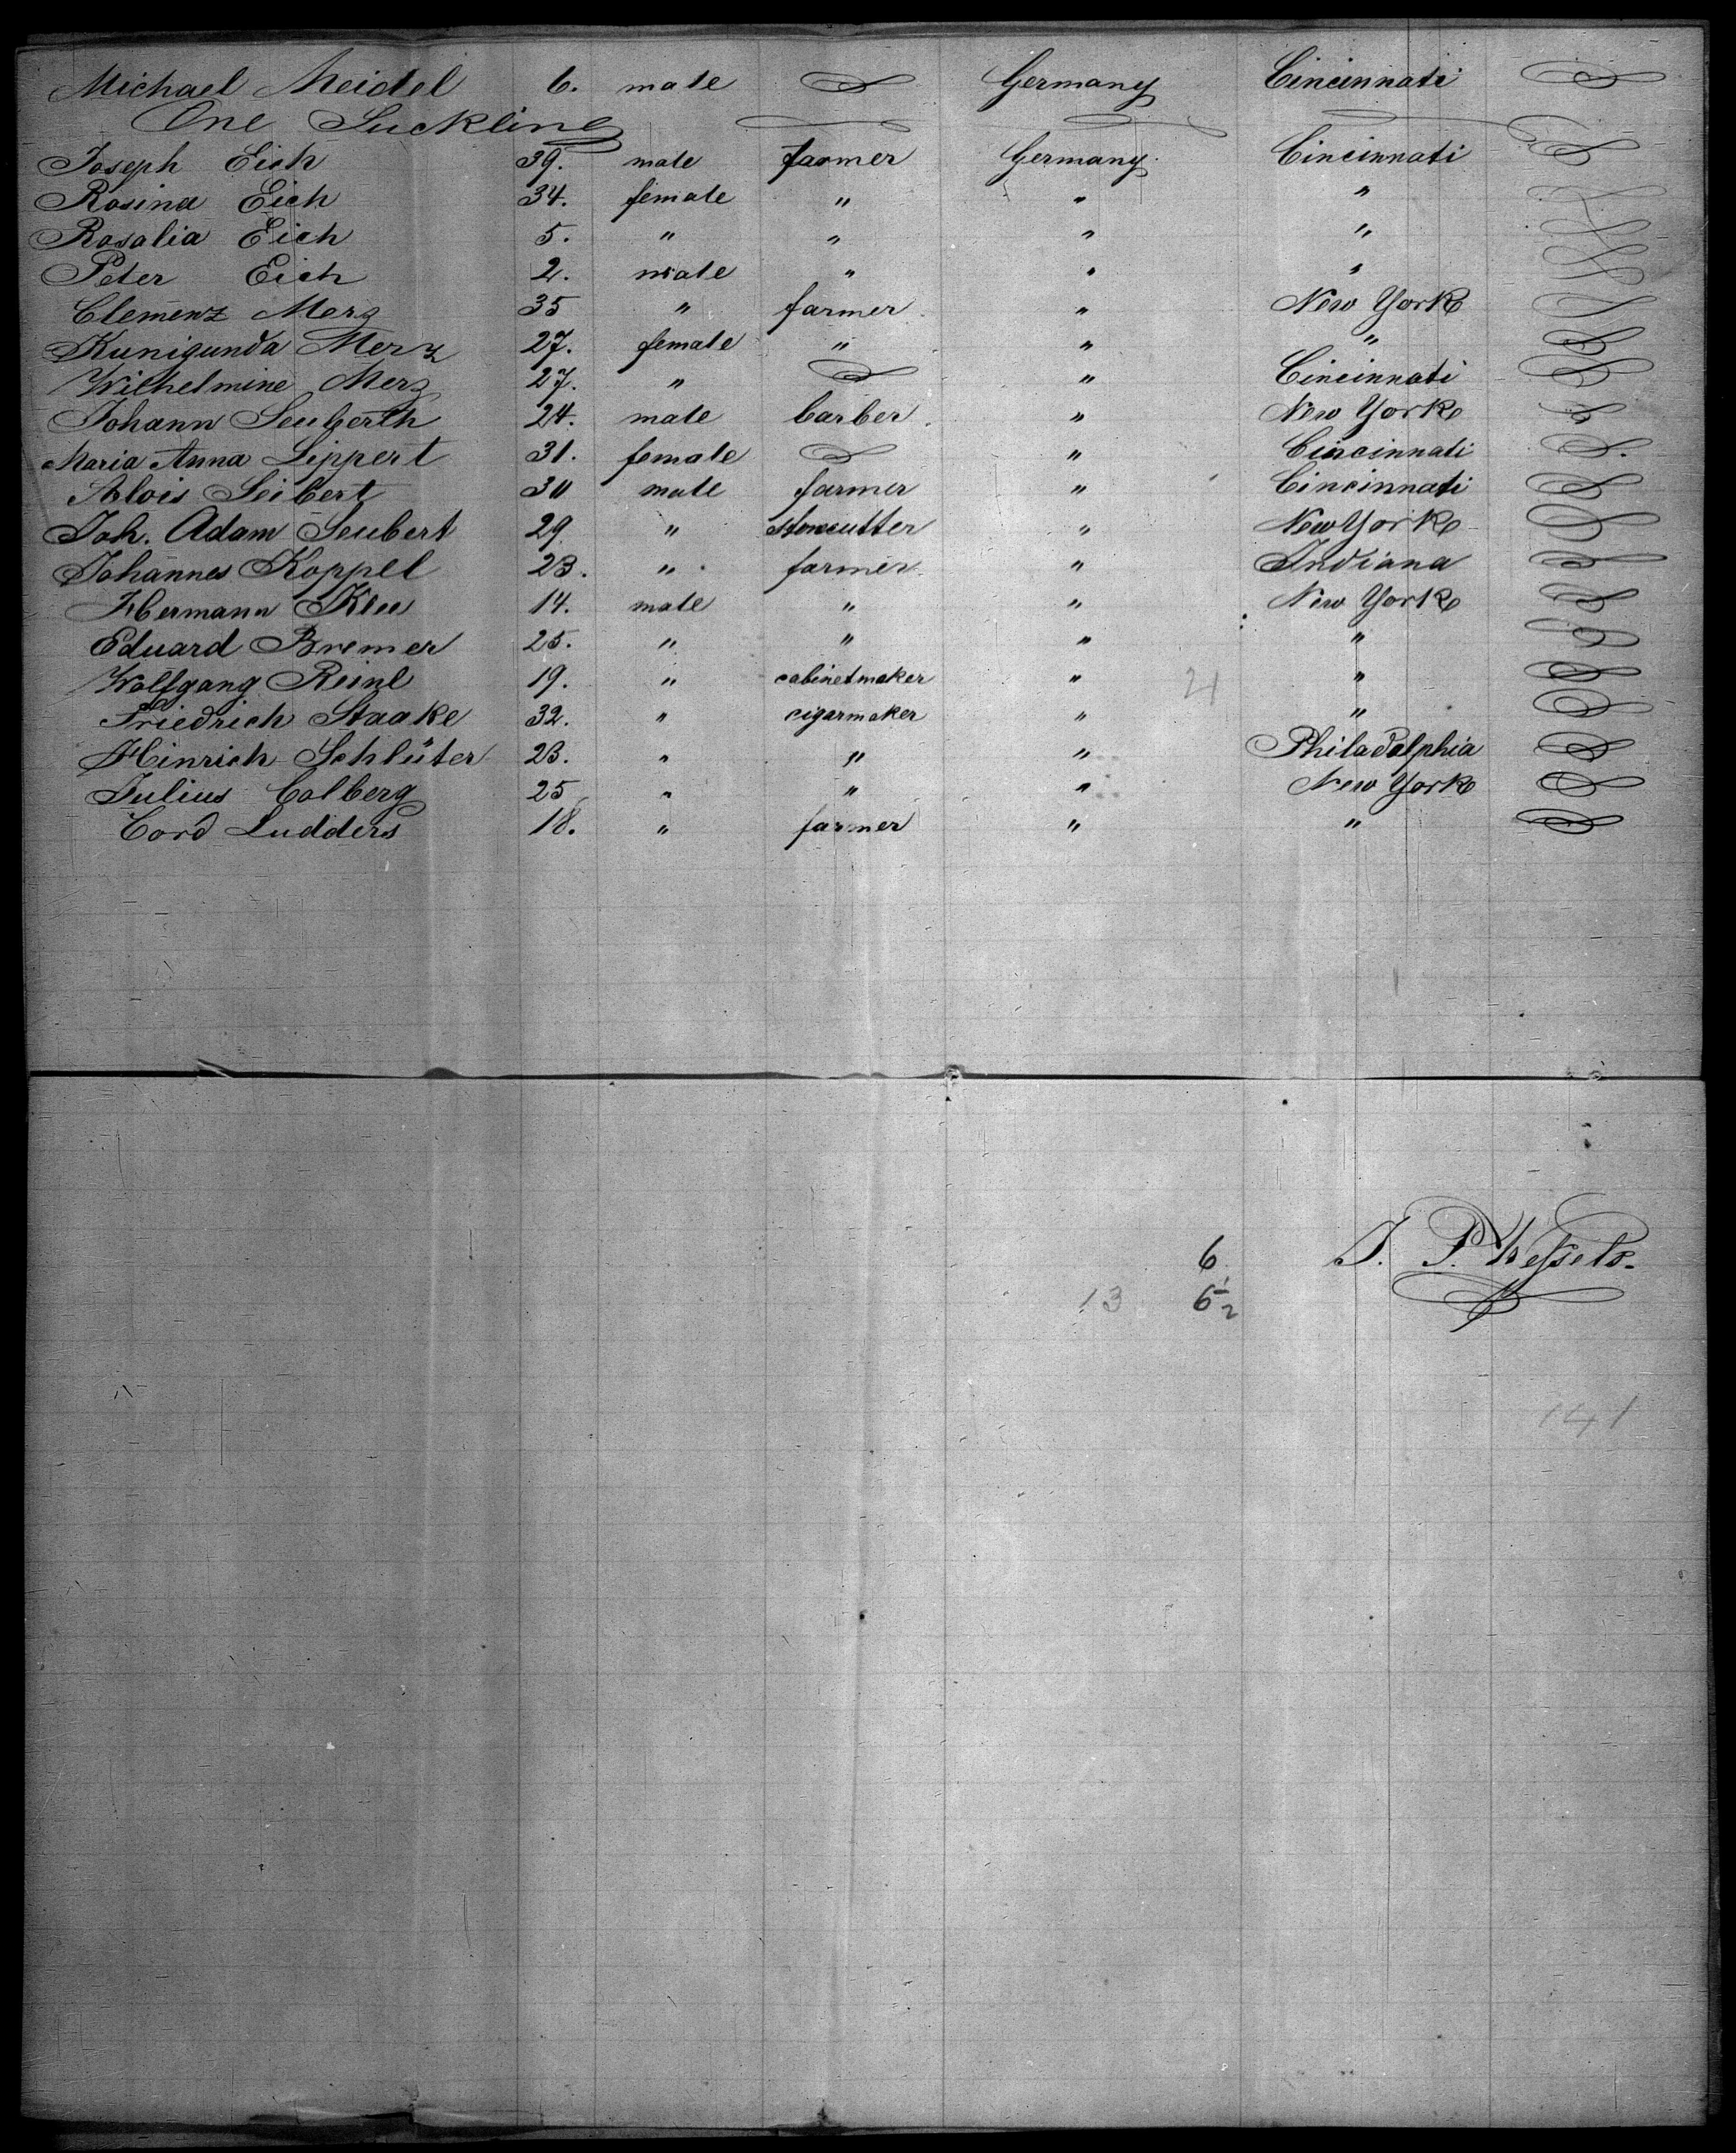 Michael Meidel 6. male Germany Cincinnati
One Suckling
Joseph Eich 39. male farmer Germany. Cincinnati
Rosina Eich 34. female " " "
Rosalia Eich 5. " " " "
Peter Eich 2. male " " "
Clemenz Merz 35 " farmer " New York
Kunigunda Merz 27. female " " "
Wilhelmine Merz 27. " " Cincinnati
Johann Seuberth 24. male barber " New York
Maria Anna Lippert 31. female " Cincinnati
Alois Seibert 30 male farmer " Cincinnati
Joh. Adam Seubert 29. " stonecutter " New York
Johannes Koppel 23. " farmer " Indiana
Hermann Klee 14. male " " New York
Eduard Bremer 25. " " " "
Wolfgang Reinl 19. " cabinetmaker " "
Friedrich Staake 32. " cigarmaker " "
Hinrich Schlüter 23. " " " Philadelphia
Julius Colberg 25 " " " New York
Cord Ludders 18. " farmer " "
21
6 J. P. Wessels.
13 6 1/2
141